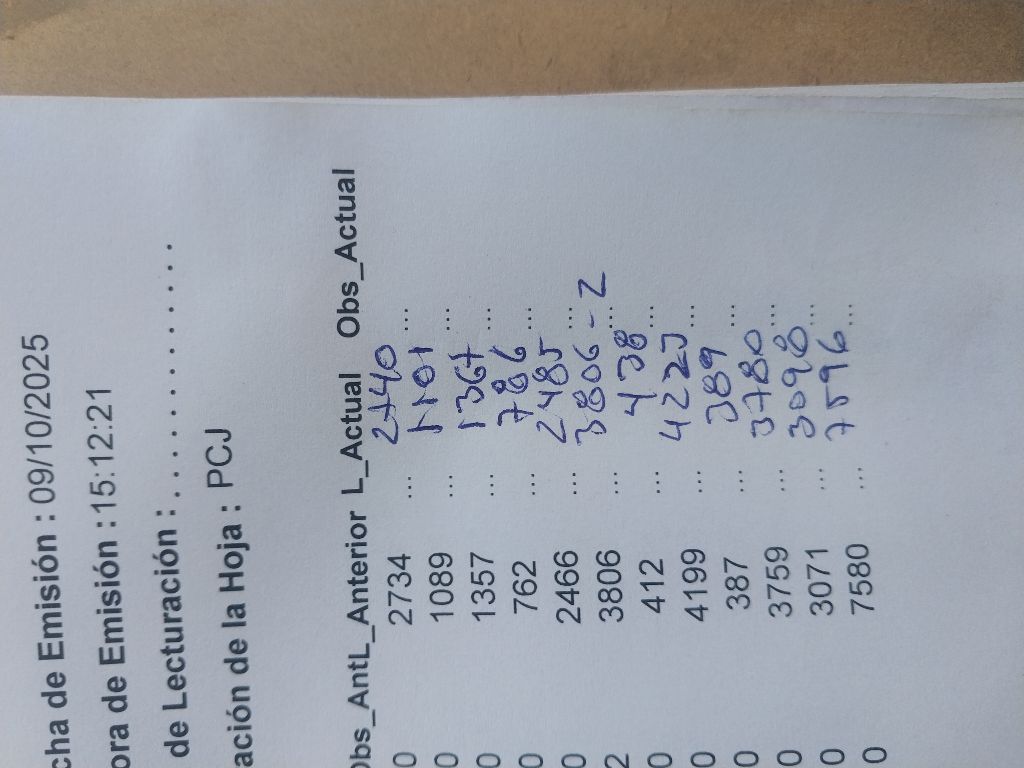 cha de Emisión : 09/10/2025
ora de Emisión : 15:12:21
de Lecturación : . . . . . . . . . . . . .
ación de la Hoja : PCJ
Obs_AntL_Anterior L_Actual Obs_Actual
0 2734 ... 2740 ...
0 1089 ... 1101 ...
0 1357 ... 1367 ...
0 762 ... 786 ...
0 2466 ... 2485 ...
2 3806 ... 3806 - 2 ...
0 412 ... 438 ...
0 4199 ... 4223 ...
0 387 ... 389 ...
0 3759 ... 3780 ...
0 3071 ... 3098 ...
0 7580 ... 7596 ...